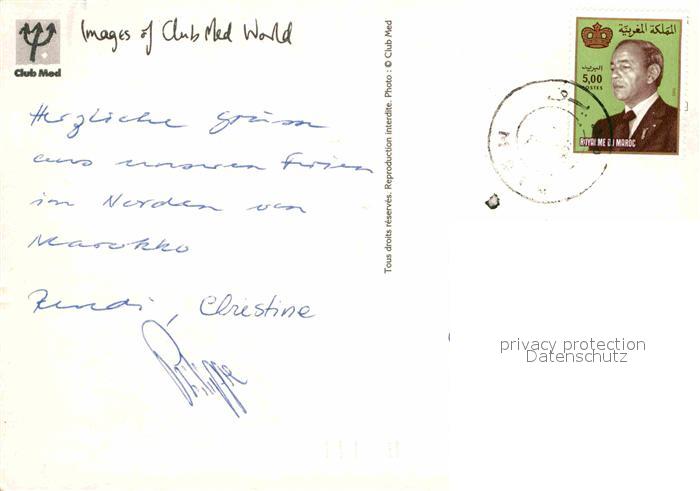 Images of Club Med World
Club Med
Herzliche Grüsse
aus unseren Ferien
im Norden von
Marokko
Ruedi, Christine
Philippe
Tous droits réservés. Reproduction interdite. Photo : © Club Med
المملكة المغربية
البريد
5,00
POSTES
ROYAUME DU MAROC
privacy protection
Datenschutz